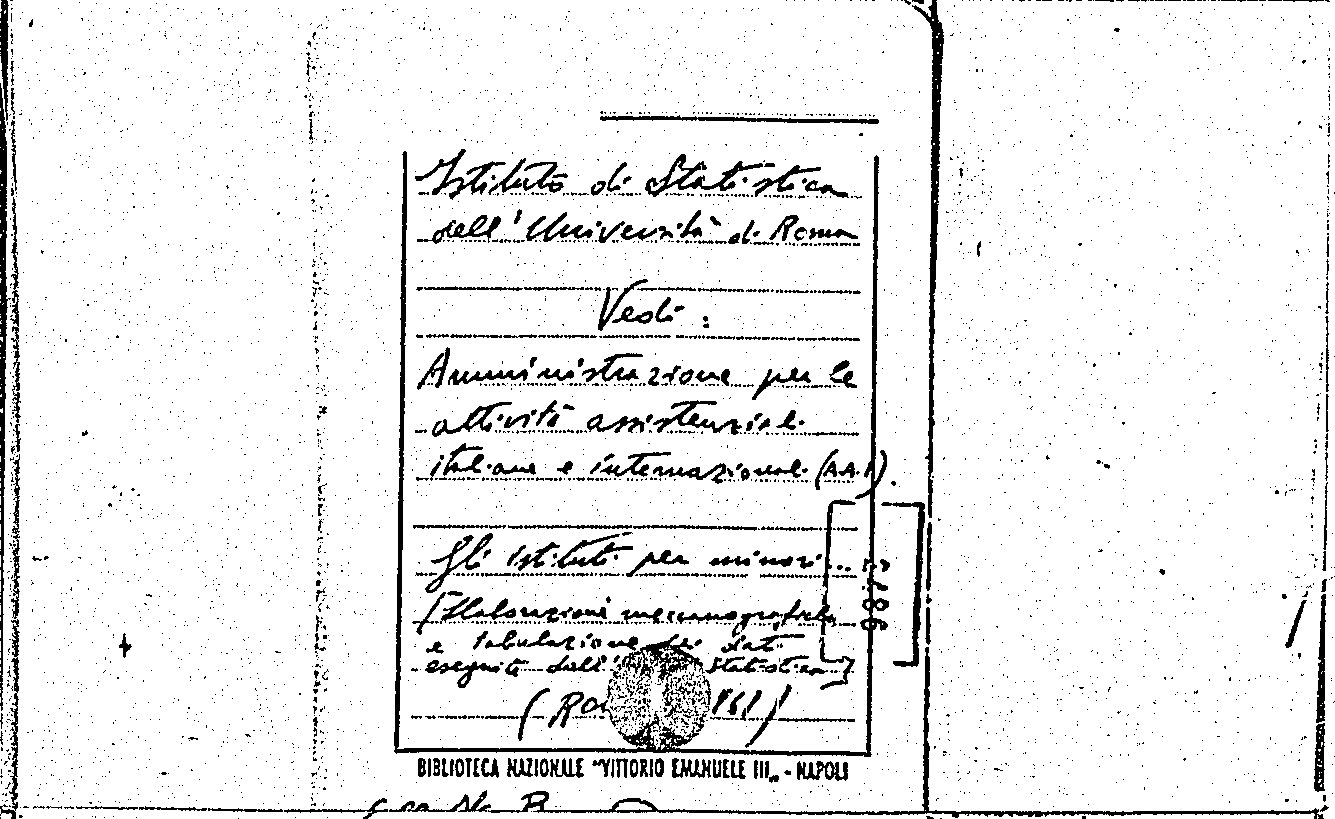 Istituto di Statistica
dell'Università di Roma
Vedi:
Amministrazione per le
attività assistenziali
italiane e internazionali (A.A.I).
Gli istituti per minori...
[Elaborazione meccanografica
e tabulazione dei dati
eseguite dall' Statistica]
(
BIBLIOTECA NAZIONALE "VITTORIO EMANUELE III„ - NAPOLI